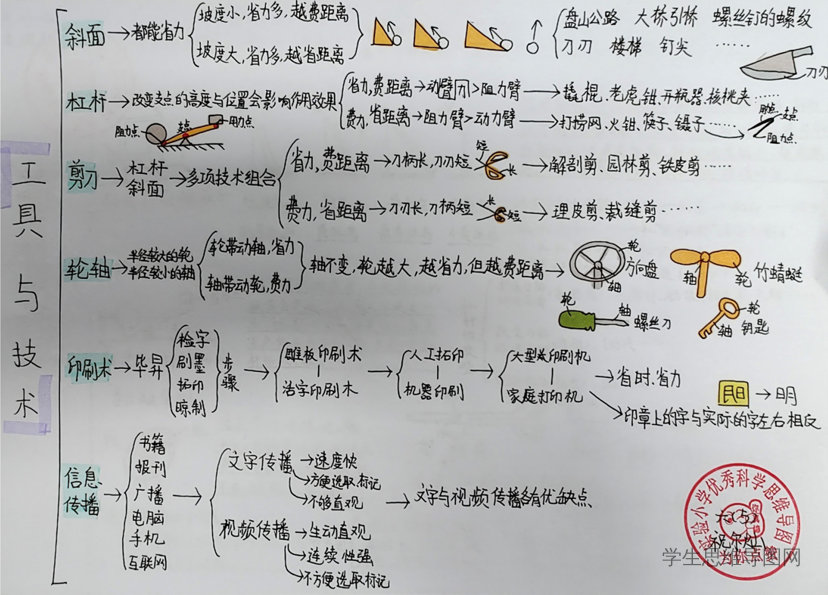 工具与技术
斜面→都能省力
坡度小,省力多,越费距离
坡度大,省力多,越省距离
盘山公路 大桥引桥 螺丝钉的螺纹
刀刃 楼梯 钉尖 ……
刀刃
杠杆→改变支点的高度与位置会影响作用效果
省力,费距离→动臂>阻力臂→撬棍、老虎钳、开瓶器、核桃夹……
费力,省距离→阻力臂>动力臂→打捞网、火钳、筷子、镊子……
阻力点
支点
用力点
支点
阻力点
剪刀→杠杆
斜面→多项技术组合
省力,费距离→刀柄长,刀刃短
短
长
→解剖剪、园林剪、铁皮剪……
费力,省距离→刀刃长,刀柄短
长
短
→理皮剪、裁缝剪……
轮轴→半径较大的轮
半径较小的轴
轮带动轴,省力
轴带动轮,费力
轴不变,轮越大,越省力,但越费距离→
轮
方向盘
轴
轴
轮
竹蜻蜓
轮
轴
螺丝刀
轮
轴
钥匙
印刷术→毕昇
检字
刷墨
拓印
晾制
步骤
雕板印刷术
活字印刷术
人工拓印
机器印刷
大型印刷机
家庭打印机
→省时、省力
→印章上的字与实际的字左右相反
→明
信息传播
书籍
报刊
广播
电脑
手机
互联网
文字传播→速度快
→方便选取、标记
→不够直观
视频传播→生动直观
→连续性强
→不方便选取标记
→文字与视频传播各有优缺点
实验小学优秀科学思维导图
六(5)
学生思维导图网